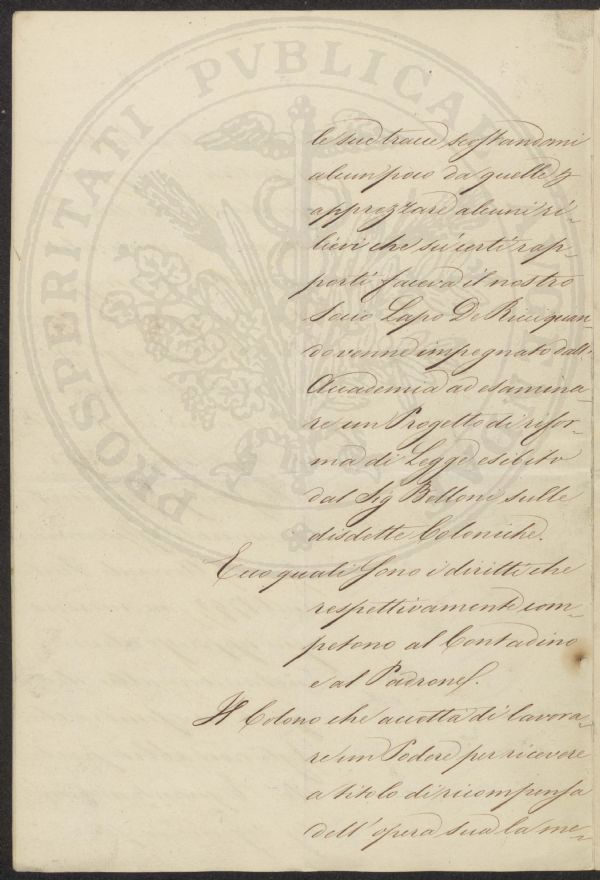 PROSPERITATI PVBLICAE
le sue traccie scostandomi
alcun poco da quelle
apprezzare alcuni ri-
lievi che su certi rap-
porti faceva il nostro
Socio Lapo De Ricci quan-
do venne impegnato dall'
Accademia ad esamina-
re un Progetto di rifor-
ma di Legge esibito
dal Sig Belloni sulle
disdette Coloniche.
Ecco quali sono i diritti che
respettivamente com-
petono al Contadino
e al Padrone.
Il Colono che accetta di lavora-
re un Podere per ricevere
a titolo di ricompensa
dell' opera sua la me-